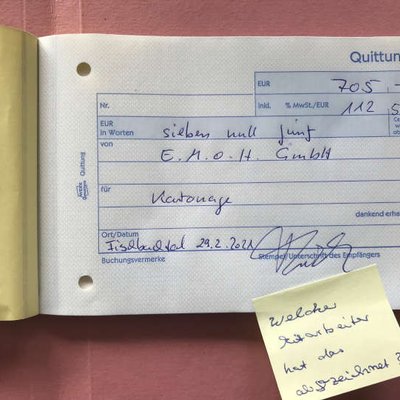 Quittun
EUR 705,-
Nr. inkl. % MwSt./EUR 112,5
EUR
in Worten sieben null fünf
von E.M.O.H. GmbH
Quittung
für Kartonage
dankend erha
Ort/Datum
Fischbachtal 29.2.2021
Buchungsvermerke Stempel/Unterschrift des Empfängers
Welcher
Mitarbeiter
hat das
abgezeichnet?